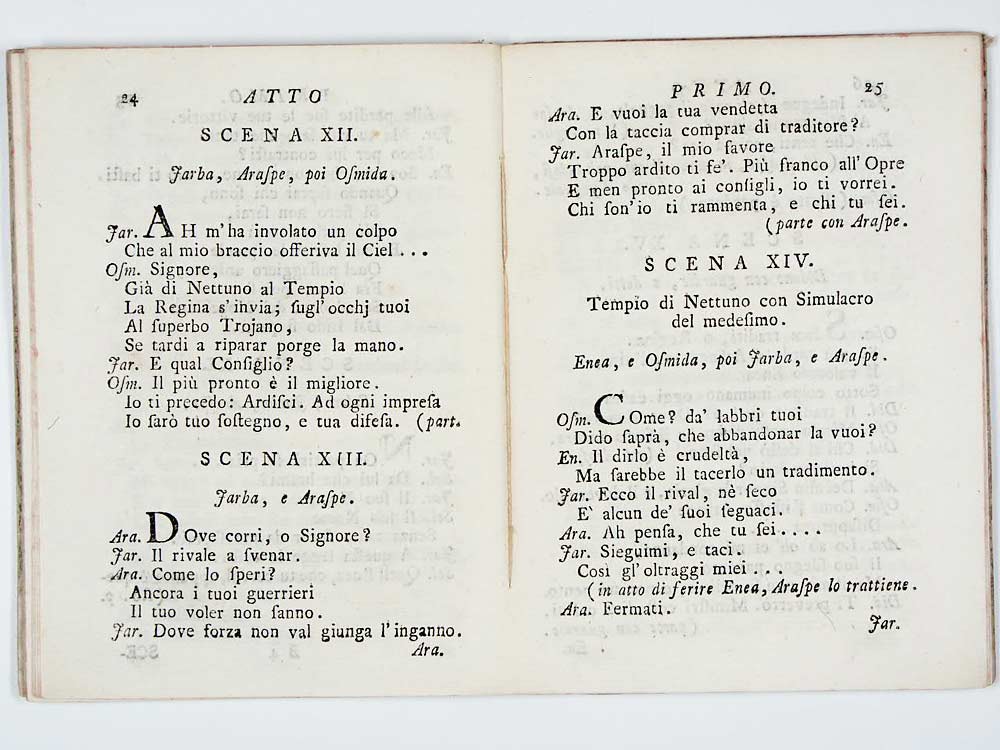 24 ATTO
SCENA XII.
Jarba, Araſpe, poi Oſmida.
Jar. AH m'ha involato un colpo
Che al mio braccio offeriva il Ciel . . .
Oſm. Signore,
Già di Nettuno al Tempio
La Regina s'invia; ſugl'occhj tuoi
Al ſuperbo Trojano,
Se tardi a riparar porge la mano.
Jar. E qual Conſiglio?
Oſm. Il più pronto è il migliore.
Io ti precedo: Ardiſci. Ad ogni impreſa
Io ſarò tuo ſoſtegno, e tua difeſa. (part.
SCENA XIII.
Jarba, e Araſpe.
Ara. DOve corri, o Signore?
Jar. Il rivale a ſvenar.
Ara. Come lo ſperi?
Ancora i tuoi guerrieri
Il tuo voler non ſanno.
Jar. Dove forza non val giunga l'inganno.
Ara.
PRIMO. 25
Ara. E vuoi la tua vendetta
Con la taccia comprar di traditore?
Jar. Araſpe, il mio favore
Troppo ardito ti fe'. Più franco all'Opre
E men pronto ai conſigli, io ti vorrei.
Chi ſon'io ti rammenta, e chi tu ſei.
(parte con Araſpe.
SCENA XIV.
Tempio di Nettuno con Simulacro
del medeſimo.
Enea, e Oſmida, poi Jarba, e Araſpe.
Oſm. COme? da' labbri tuoi
Dido ſaprà, che abbandonar la vuoi?
En. Il dirlo è crudeltà,
Ma ſarebbe il tacerlo un tradimento.
Jar. Ecco il rival, nè ſeco
E' alcun de' ſuoi ſeguaci.
Ara. Ah penſa, che tu ſei . . . .
Jar. Sieguimi, e taci.
Così gl'oltraggi miei . . .
(in atto di ferire Enea, Araſpe lo trattiene.
Ara. Fermati.
Jar.